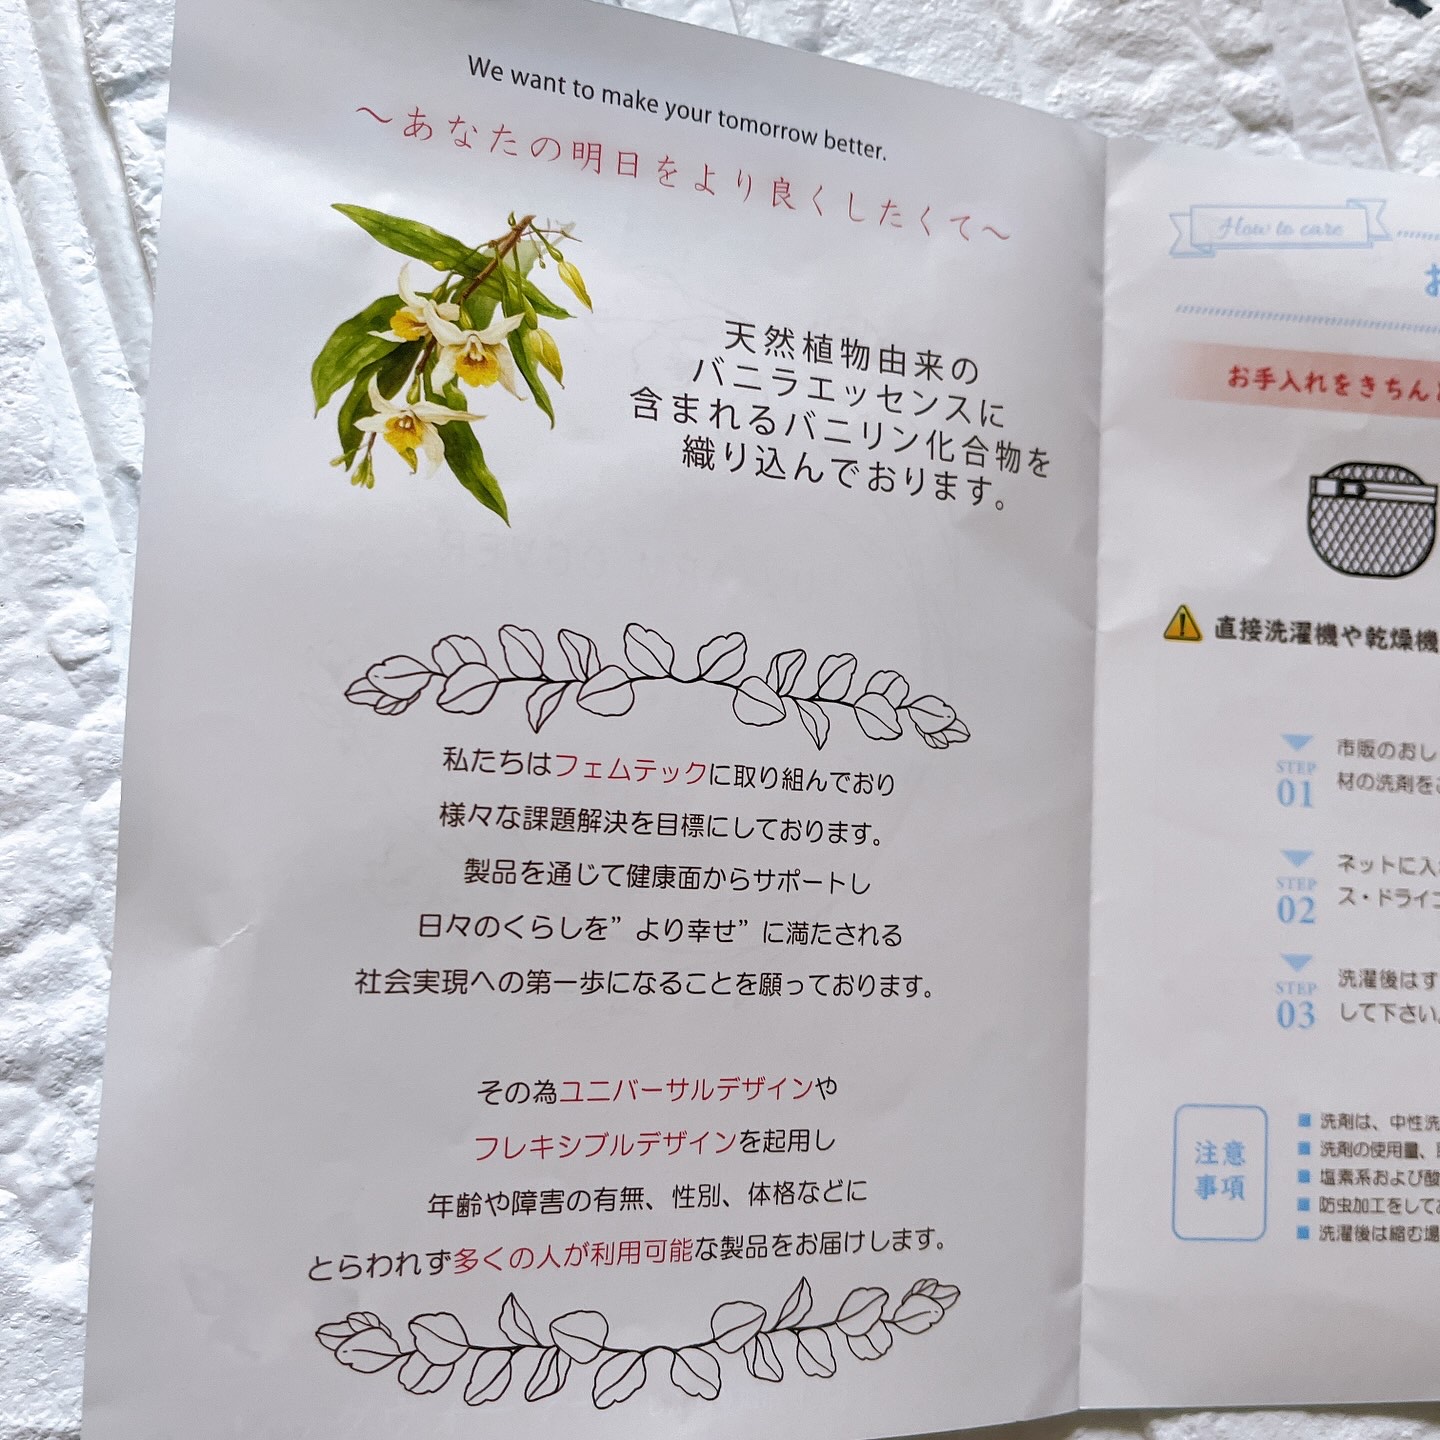 We want to make your tomorrow better.
～あなたの明日をより良くしたくて～
天然植物由来の
バニラエッセンスに
含まれるバニリン化合物を
織り込んでおります。
私たちはフェムテックに取り組んでおり
様々な課題解決を目標にしております。
製品を通じて健康面からサポートし
日々のくらしを”より幸せ”に満たされる
社会実現への第一歩になることを願っております。
その為ユニバーサルデザインや
フレキシブルデザインを起用し
年齢や障害の有無、性別、体格などに
とらわれず多くの人が利用可能な製品をお届けします。
How to care
お
お手入れをきちん
直接洗濯機や乾燥機
STEP
01
市販のおし
材の洗剤を
STEP
02
ネットに入
ス・ドライ
STEP
03
洗濯後はす
して下さい。
注意
事項
洗剤は、中性洗
洗剤の使用量、
塩素系および酸
防虫加工をして
洗濯後は縮む場